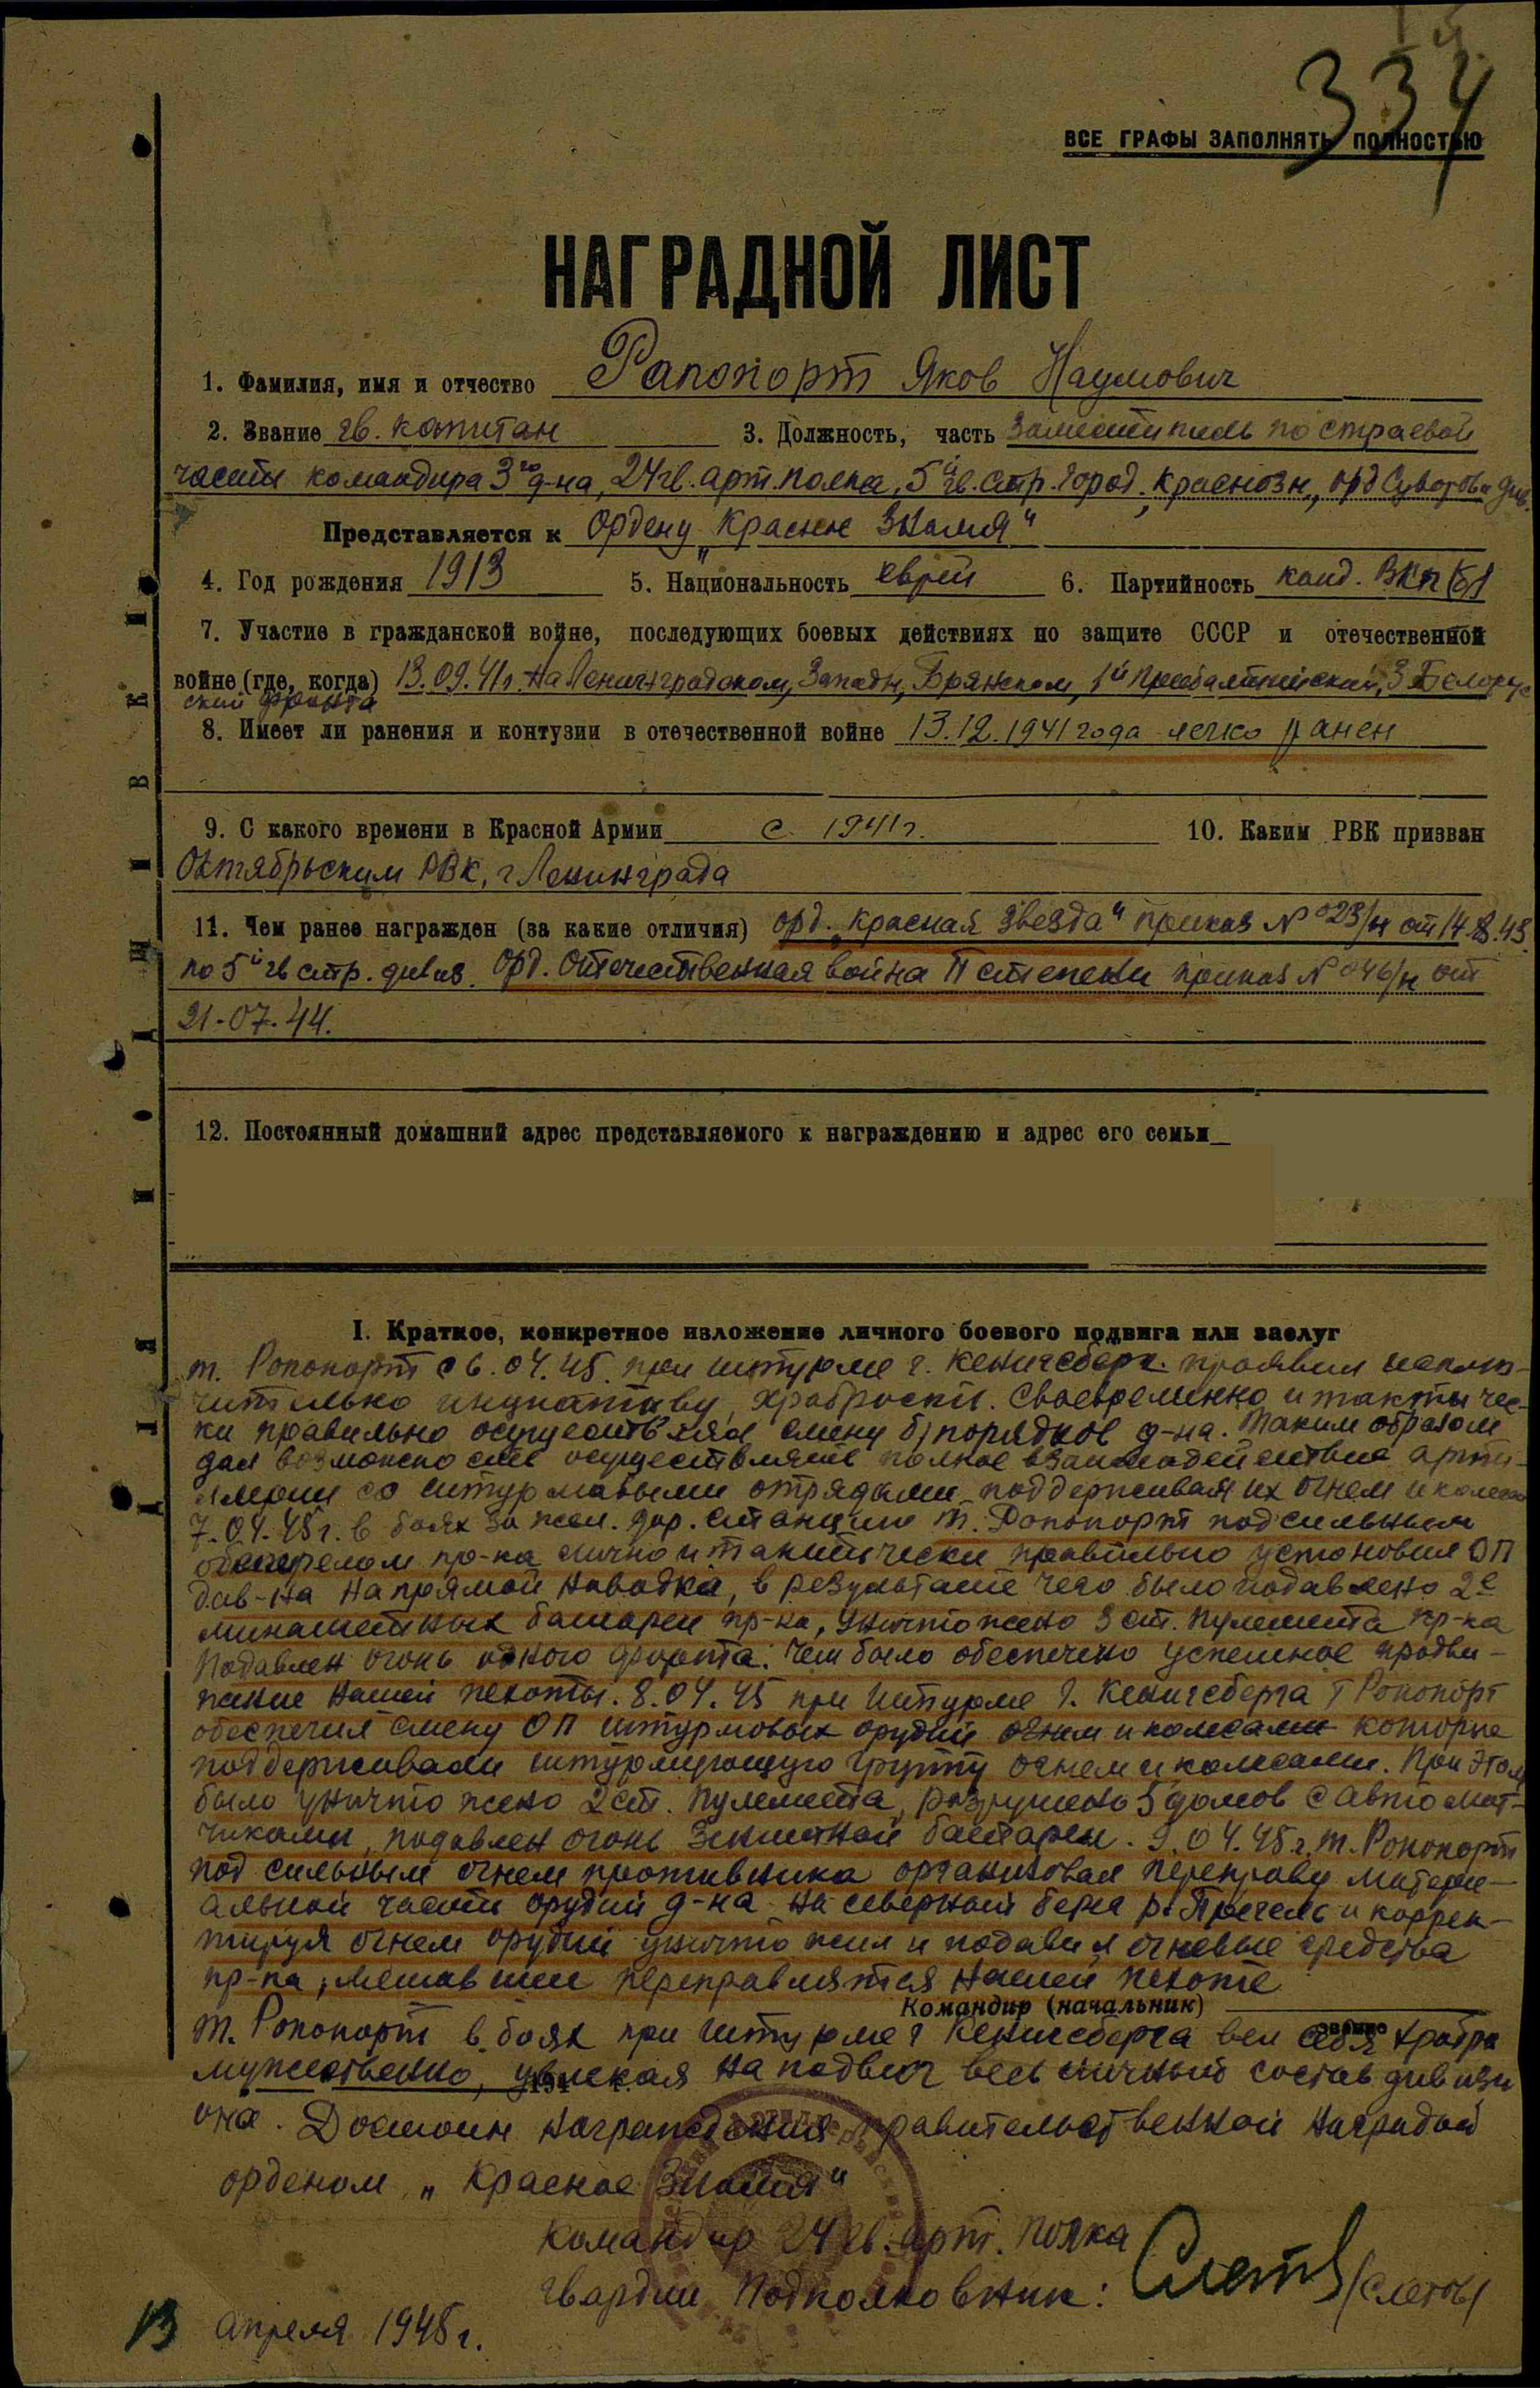 334
ВСЕ ГРАФЫ ЗАПОЛНЯТЬ ПОЛНОСТЬЮ
НАГРАДНОЙ ЛИСТ
1. Фамилия, имя и отчество Рапопорт Яков Наумович
2. Звание гв. капитан 3. Должность, часть Заместитель по строевой
части командира 3го д-на, 24 гв. арт. полка, 5й гв. стр. Город. Краснозн., орд Суворова див.
Представляется к Ордену „Красное Знамя“
4. Год рождения 1913 5. Национальность еврей 6. Партийность канд. ВКП(б)
7. Участие в гражданской войне, последующих боевых действиях по защите СССР и отечественной
войне (где, когда) 13.09.41г. На Ленинградском, Западн, Брянском, 1й Прибалтийский, 3 Белорус
ский фронта
8. Имеет ли ранения и контузии в отечественной войне 13.12.1941 года легко ранен
9. С какого времени в Красной Армии с 1941г. 10. Каким РВК призван
Октябрьским РВК, г Ленинграда
11. Чем ранее награжден (за какие отличия) орд. „Красная Звезда“ приказ № 023/н от 14.8.43.
по 5й гв стр. дивиз. Орд. Отечественная война II степени приказ № 046/н от
21-07-44.
12. Постоянный домашний адрес представляемого к награждению и адрес его семьи
I. Краткое, конкретное изложение личного боевого подвига или заслуг
т. Ропопорт с 6.04.45. при штурме г. Кенигсберг. проявил исклю-
чительно инциативу, храбрости. Своевременно и тактичес-
ки правильно осуществлял смену б/порядков д-на. Таким образом
дал возможность осуществлять полное взаимодействие арти-
лерии со штурмовыми отрядами поддерживая их огнем и колесами
7.04.45г. в боях за жел. дор. станцию т. Ропопорт под сильным
обстрелом пр-ка лично и тактически правильно установил ОП
див-на на прямой наводка, в результате чего было подавлено 2е
минаметных батареи пр-ка, уничтожено 3 ст. пулемета пр-ка
Подавлен огонь одного форта. Чем было обеспечено успешное продви-
жение нашей пехоты. 8.04.45 при штурме г. Кенигсберга т Ропопорт
обеспечил смену ОП штурмовых орудий огнем и колесами которые
поддерживали штурмующую группу огнем и колесами. При этом
было уничтожено 2 ст. пулемета, разрушено 5 домов с автомат-
чиками, подавлен огонь Зенитной батареи. 9.04.45г. т. Ропопорт
под сильным огнем противника организовал переправу матери-
альной части орудий д-на на северный берег р. Прегель и коррек-
тируя огнем орудий уничтожил и подавил огневые средства
пр-ка, мешавшие переправлятся нашей пехоте
Командир (начальник)
звание
т. Ропопорт в боях при штурме г Кенигсберга вел себя храбро
мужественно, увлекая на подвиг весь личный состав дивизи
она. Достоин награждения правительственной наградой
орденом „Красное Знамя“
Командир 24 гв. арт. полка
Гвардии Подполковник: (Слетов)
13 апреля 1945г.